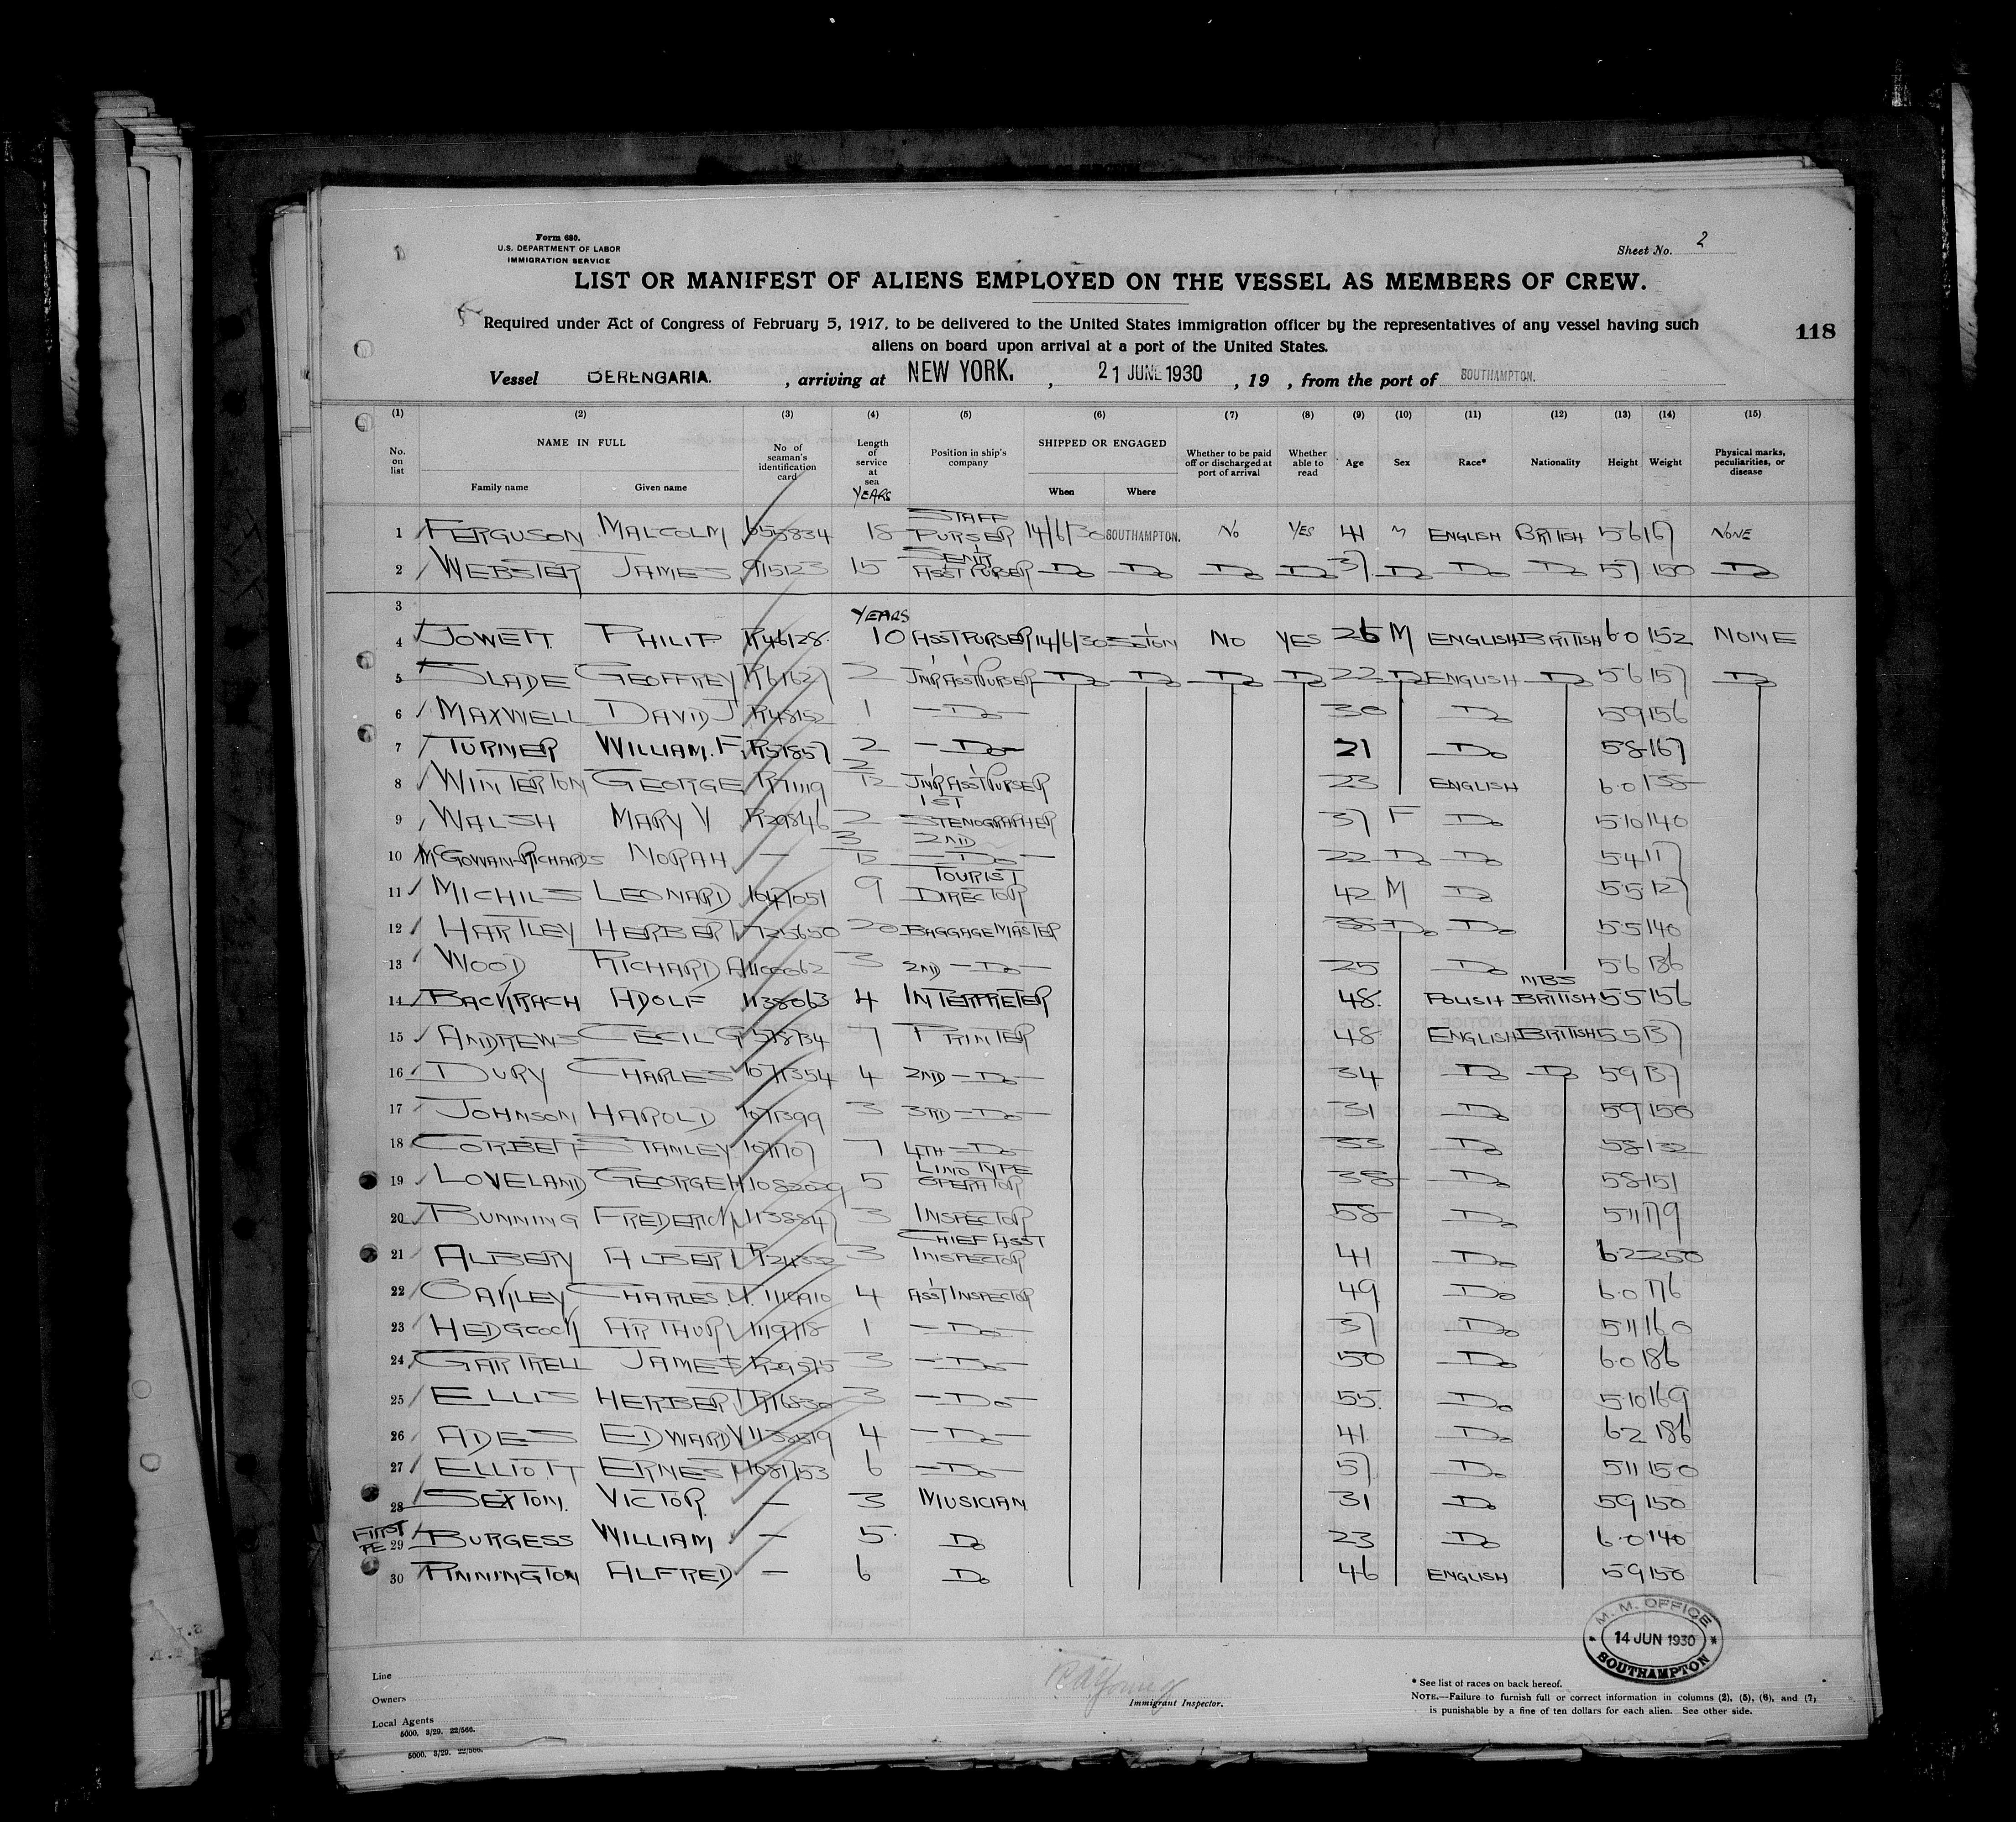 Form 680.
U.S. DEPARTMENT OF LABOR
IMMIGRATION SERVICE
Sheet No. 2
LIST OR MANIFEST OF ALIENS EMPLOYED ON THE VESSEL AS MEMBERS OF CREW.
Required under Act of Congress of February 5, 1917, to be delivered to the United States immigration officer by the representatives of any vessel having such
aliens on board upon arrival at a port of the United States.
118
Vessel BERENGARIA. , arriving at NEW YORK. , 21 JUNE 1930 , 19 , from the port of SOUTHAMPTON.
(1) (2) (3) (4) (5) (6) (7) (8) (9) (10) (11) (12) (13) (14) (15)
No. on list NAME IN FULL Family name Given name No of seaman's identification card Length of service at sea YEARS Position in ship's company SHIPPED OR ENGAGED When Where Whether to be paid off or discharged at port of arrival Whether able to read Age Sex Race* Nationality Height Weight Physical marks, peculiarities, or disease
1 FERGUSON MALCOLM 18 STAFF PURSER 14/6/30 SOUTHAMPTON. NO YES 41 M ENGLISH BRITISH 5 6 167 NONE
2 WEBSTER JAMES 915123 15 SENR ASST PURSER Do Do Do Do 37 Do Do Do 5 7 150 Do
3 YEARS
4 JOWETT PHILIP R46128 10 ASST PURSER 14/6/30 S'TON NO YES 26 M ENGLISH BRITISH 6.0 152 NONE
5 SLADE GEOFFREY R61627 2 JNR ASST PURSER Do Do Do Do 22 Do ENGLISH Do 5 6 157 Do
6 MAXWELL DAVID J R48152 1 Do 30 Do 5 9 156
7 TURNER WILLIAM. F. R51857 2 Do 21 Do 5 8 167
8 WINTERTON GEORGE R71119 2/12 JNR ASST PURSER 23 ENGLISH 6.0 138
9 WALSH MARY V R29846 2 1ST STENOGRAPHER 37 F Do 5 10 140
10 McGOWAN-RICHARDS NORAH — 3/12 2ND Do 22 Do Do 5 4 117
11 MICHILS LEONARD 1047051 9 TOURIST DIRECTOR 42 M Do 5 5 127
12 HARTLEY HERBERT 725650 20 BAGGAGE MASTER 38 Do Do 5.5 140
13 WOOD RICHARD A 1100062 3 2ND Do 25 Do 5 6 136
14 BACKRACH ADOLF 1138063 4 INTERPRETER 48. POLISH NBS BRITISH 5.5 156
15 ANDREWS CECIL G 578734 7 PRINTER 48 ENGLISH BRITISH 5.5 137
16 DURY CHARLES 1071354 4 2ND Do 34 Do Do 5 9 137
17 JOHNSON HAROLD 1071399 3 3RD Do 31 Do 5 9 150
18 CORBETT STANLEY 1071707 7 4TH Do 33 Do 5 8 132
19 LOVELAND GEORGE H 1082029 5 LINO TYPE OPERATOR 38 Do 5 8 151
20 BUNNING FREDERICK 1138847 3 INSPECTOR 58 Do 5 11 179
21 ALBERY ALBERT R2432 3 CHIEF ASST INSPECTOR 41 Do 6 2 250
22 OAKLEY CHARLES. H. 1119910 4 ASST INSPECTOR 49 Do 6.0 176
23 HEDGCOCK ARTHUR 1119718 1 Do 37 Do 5 11 160
24 GARTRELL JAMES R29575 3 Do 50 Do 6.0 186
25 ELLIS HERBERT R16830 3 Do 55. Do 5 10 169
26 ADES EDWARD V 1138519 4 Do 41 Do 6 2 186
27 ELLIOTT ERNEST 1081753 6 Do 57 Do 5 11 150
28 SEXTON. VICTOR — 3 MUSICIAN 31 Do 5 9 150
FIRST
29 BURGESS WILLIAM — 5. Do 23 Do 6.0 140
30 PINNINGTON ALFRED — 6 Do 46 ENGLISH 5 9 150
M. M. OFFICE
14 JUN 1930
SOUTHAMPTON
Line
Owners
Local Agents
5000. 3/29. 22/566.
5000. 3/29. 22/566.
Immigrant Inspector.
* See list of races on back hereof.
NOTE.—Failure to furnish full or correct information in columns (2), (5), (6), and (7)
is punishable by a fine of ten dollars for each alien. See other side.